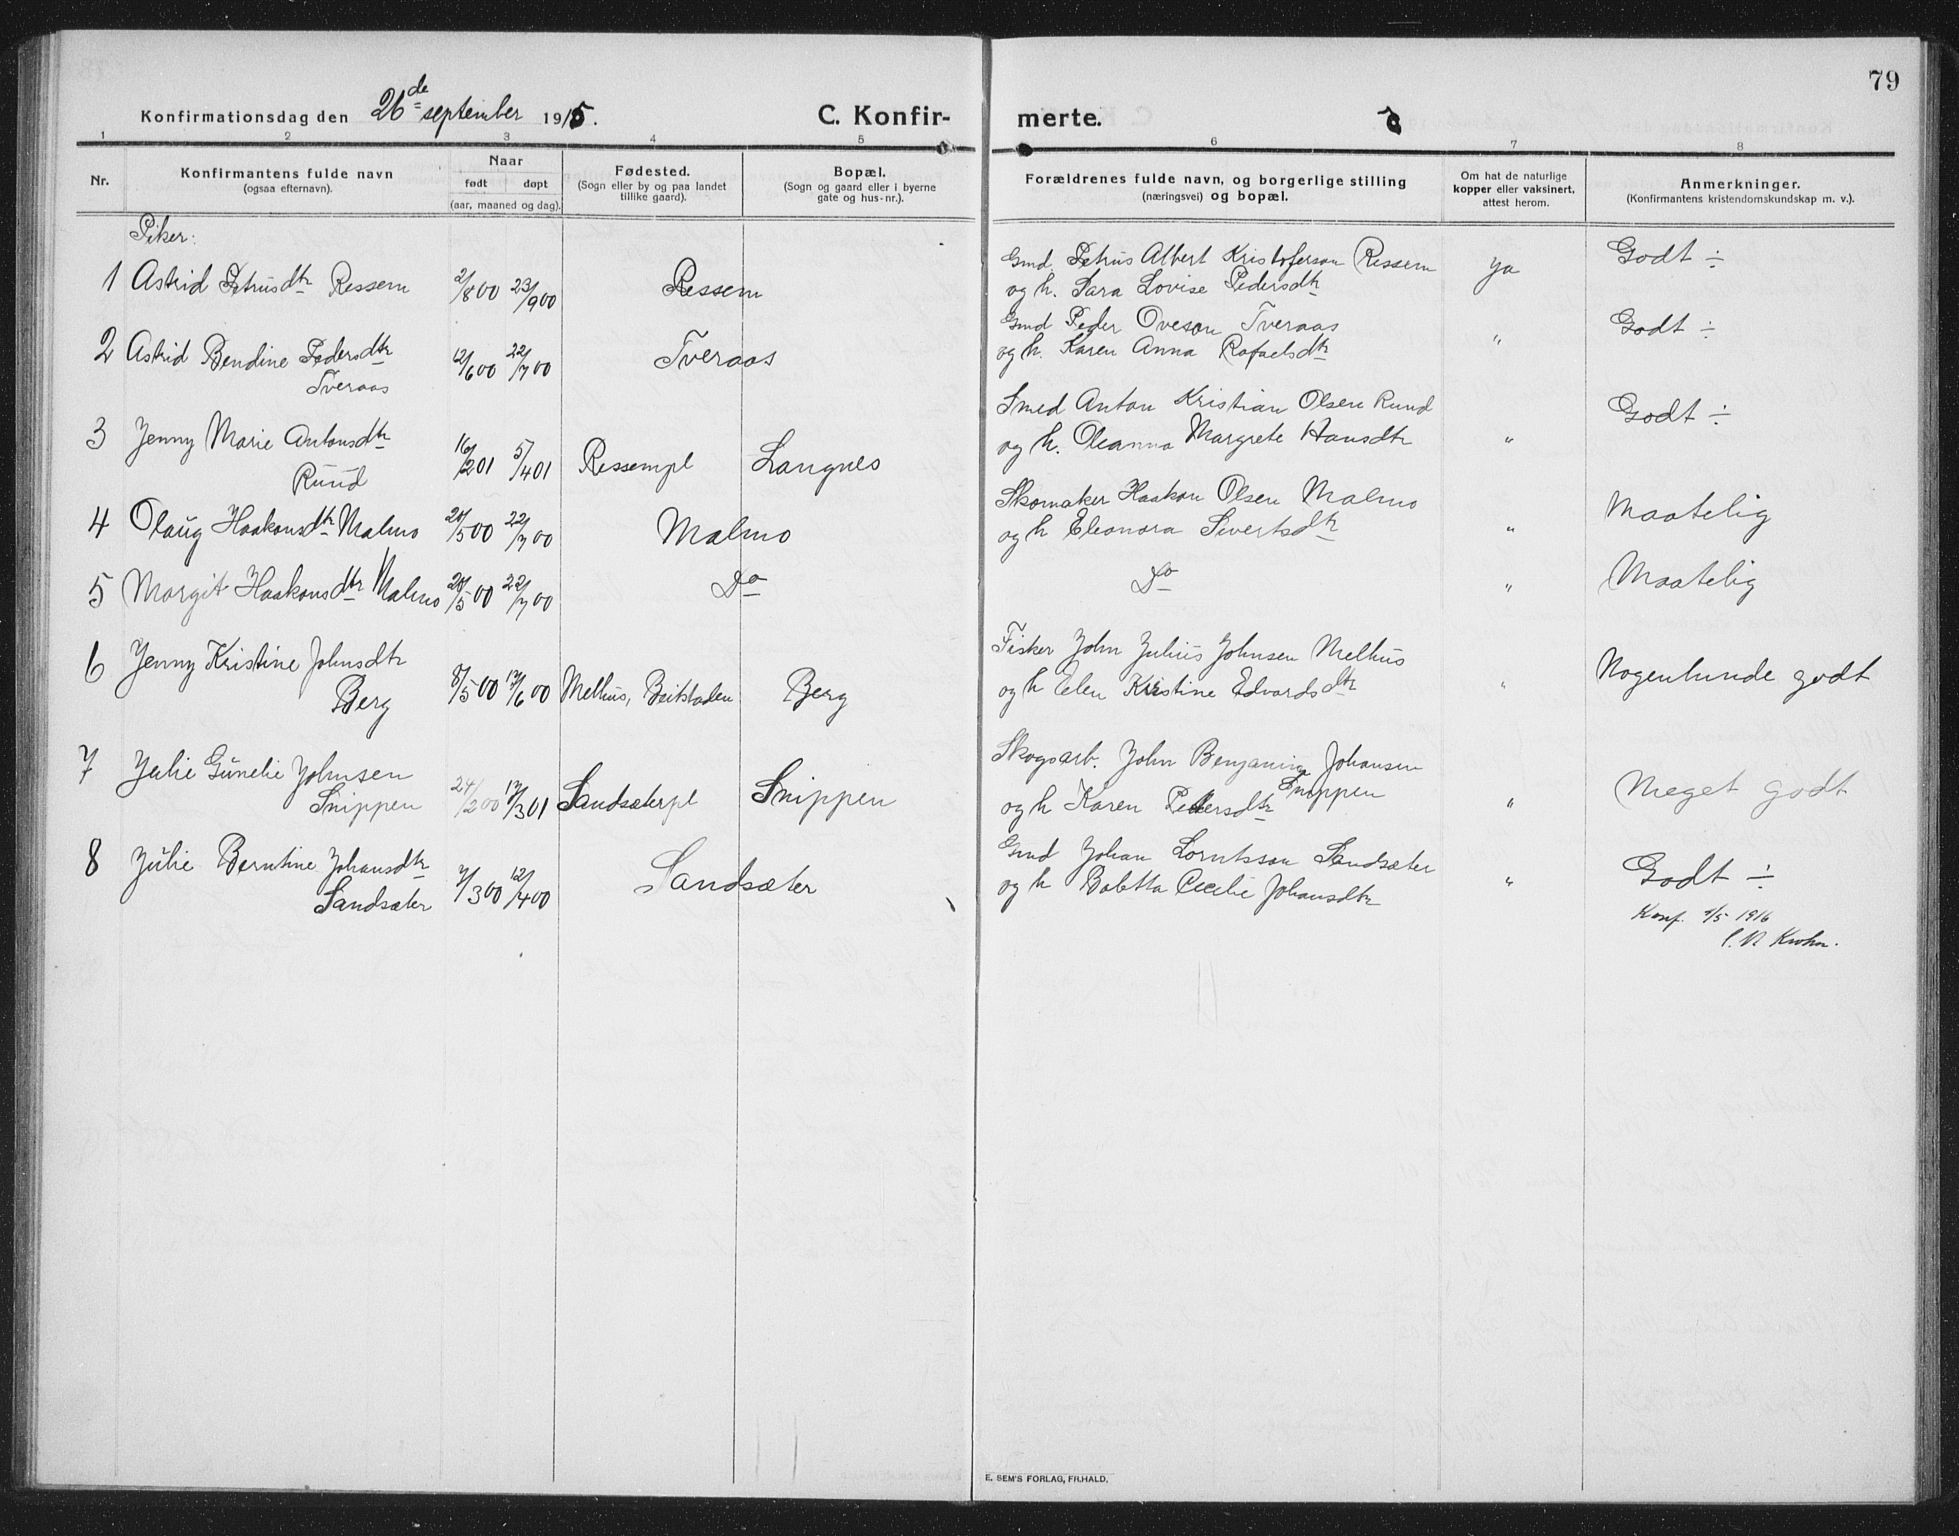 79
Konfirmationsdag den 26de september 1915.
C. Konfir-
merte.
1 2 3 4 5 6 7 8
Nr.
Konfirmantens fulde navn
(ogsaa efternavn).
Naar
født døpt
(aar, maaned og dag).
Fødested.
(Sogn eller by og paa landet
tillike gaard).
Bopæl.
(Sogn og gaard eller i byerne
gate og hus-nr.).
Forældrenes fulde navn, og borgerlige stilling
(næringsvei) og bopæl.
Om hat de naturlige
kopper eller vaksinert,
attest herom.
Anmerkninger.
(Konfirmantens kristendomskundskap m. v.).
Piker:
1 Astrid Petrusdtr Ressem 2/8 00 23/9 00 Ressem
Gmd. Petrus Albert Kristoferson Ressem
og h. Sara Lovise Pedersdtr
ja Godt ÷
2 Astrid Bendine Pedersdtr
Tveraas
12/6 00 22/7 00 Tveraas
Gmd Peder Oveson Tveraas
og h. Karen Anna Rafaelsdtr
" Godt ÷
3 Jenny Marie Antonsdtr
Ruud
16/2 01 5/4 01 Ressempl Langnes
Smed Anton Kristian Olsen Ruud
og h. Oleanna Margrete Hansdtr
" Godt ÷
4 Olaug Haakonsdtr Malmo 20/5 00 22/7 00 Malmo
Skomaker Haakon Olsen Malmo
og h Eleonora Sivertsdtr
" Maatelig
5 Margit Haakonsdtr Malmo 20/5 00 22/7 00 Do
Do
" Maatelig
6 Jenny Kristine Johnsdtr
Berg
8/5 00 17/6 00 Melhus, Beitstaden Berg
Fisker John Julius Johnsen Melhus
og h Elen Kristine Edvardsdtr
" Nogenlunde godt
7 Julie Gunelie Johnsen
Snippen
24/2 00 17/3 01 Sandsæterpl Snippen
Skogsarb. John Benjamin Johansen
Snippen
og h Karen Pedersdtr
" Meget godt
8 Julie Berntine Johansdtr
Sandsæter
7/3 00 12/4 00 Sandsæter
Gmd Johan Lorntsson Sandsæter
og h Boletta Cecilie Johansdtr
" Godt ÷
Konf. 1/5 1916
Krohn.
E. SEM'S FORLAG, FR.HALD.